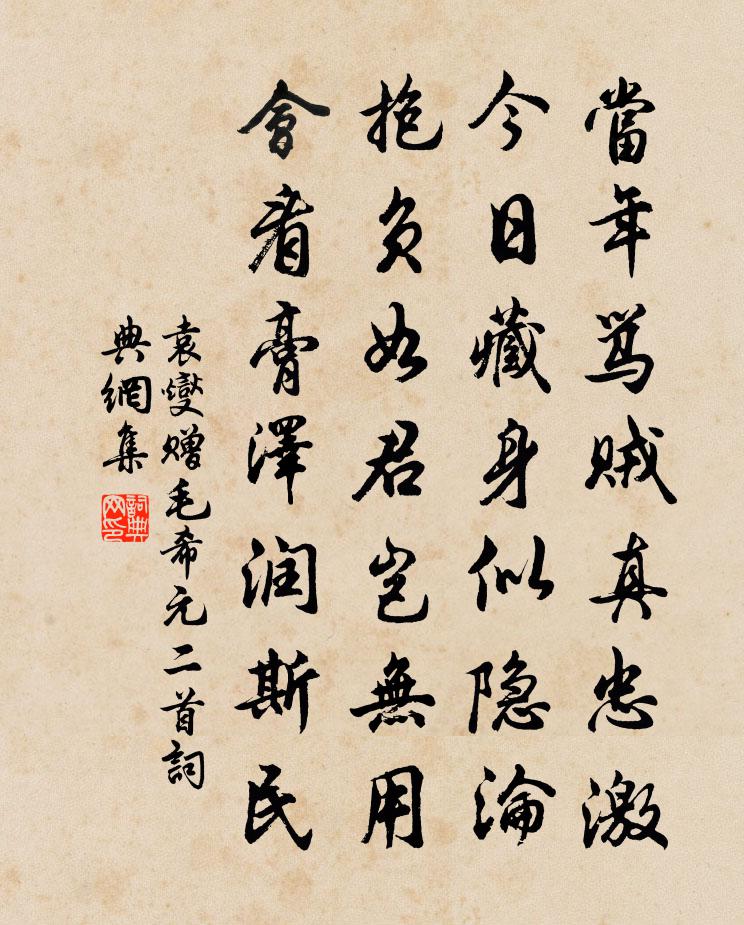 當年罵賊真忠激
今日藏身似隐淪
抱負如君岂無用
會看膏澤润斯民
袁燮赠毛希元二首詞
典網集
詞典
网印